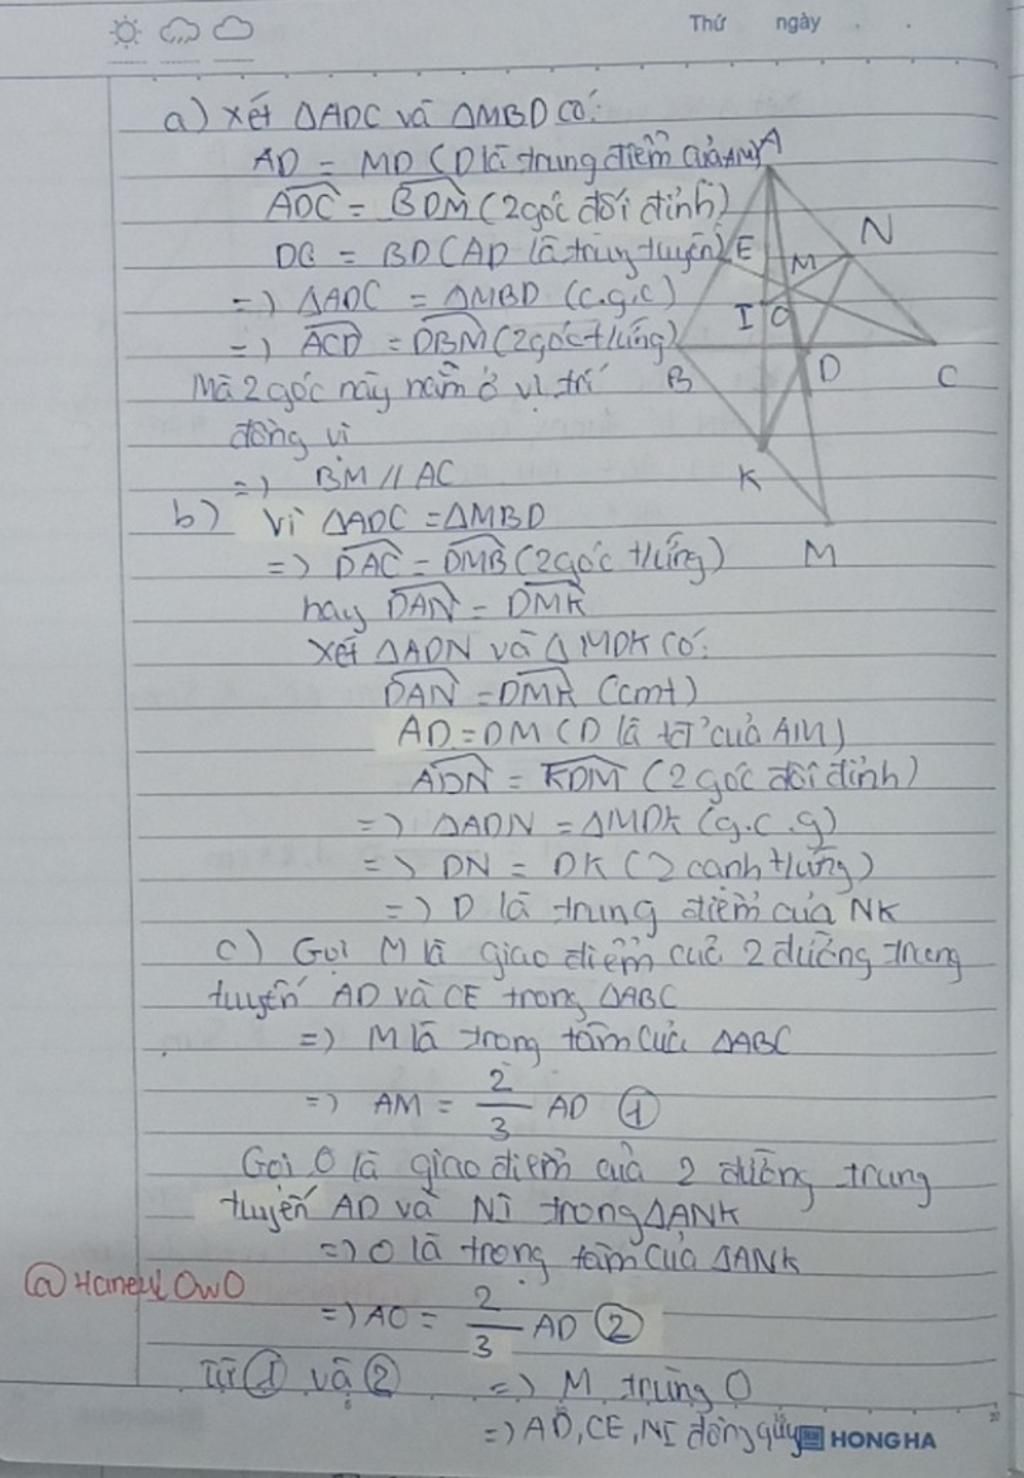 Thứ ngày
a) Xét ΔADC và ΔMBD có:
AD = MD (D là trung điểm của AM)
ADC = BDM (2 góc đối đỉnh)
DC = BD (AD là trung tuyến)
=> ΔADC = ΔMBD (c.g.c)
=> ACD = DBM (2 góc t/ứng)
Mà 2 góc này nằm ở vị trí
đồng vị
=> BM // AC
b) Vì ΔADC = ΔMBD
=> DAC = DMB (2 góc t/ứng)
hay DAN = DMK
Xét ΔADN và ΔMDK có:
DAN = DMK (cmt)
AD = DM (D là tđ của AM)
ADN = KDM (2 góc đối đỉnh)
=> ΔADN = ΔMDK (g.c.g)
=> DN = DK (2 cạnh t/ứng)
=> D là trung điểm của NK
c) Gọi M là giao điểm của 2 đường trung
tuyến AD và CE trong ΔABC
=> M là trọng tâm của ΔABC
=> AM = 2/3 AD ①
Gọi O là giao điểm của 2 đường trung
tuyến AD và NI trong ΔANK
=> O là trọng tâm của ΔANK
@Haneul OwO
=> AO = 2/3 AD ②
Từ ① và ② => M trùng O
=> AD, CE, NI đồng quy
HONG HA
A
N
E
M
I
O
B
D
C
K
M